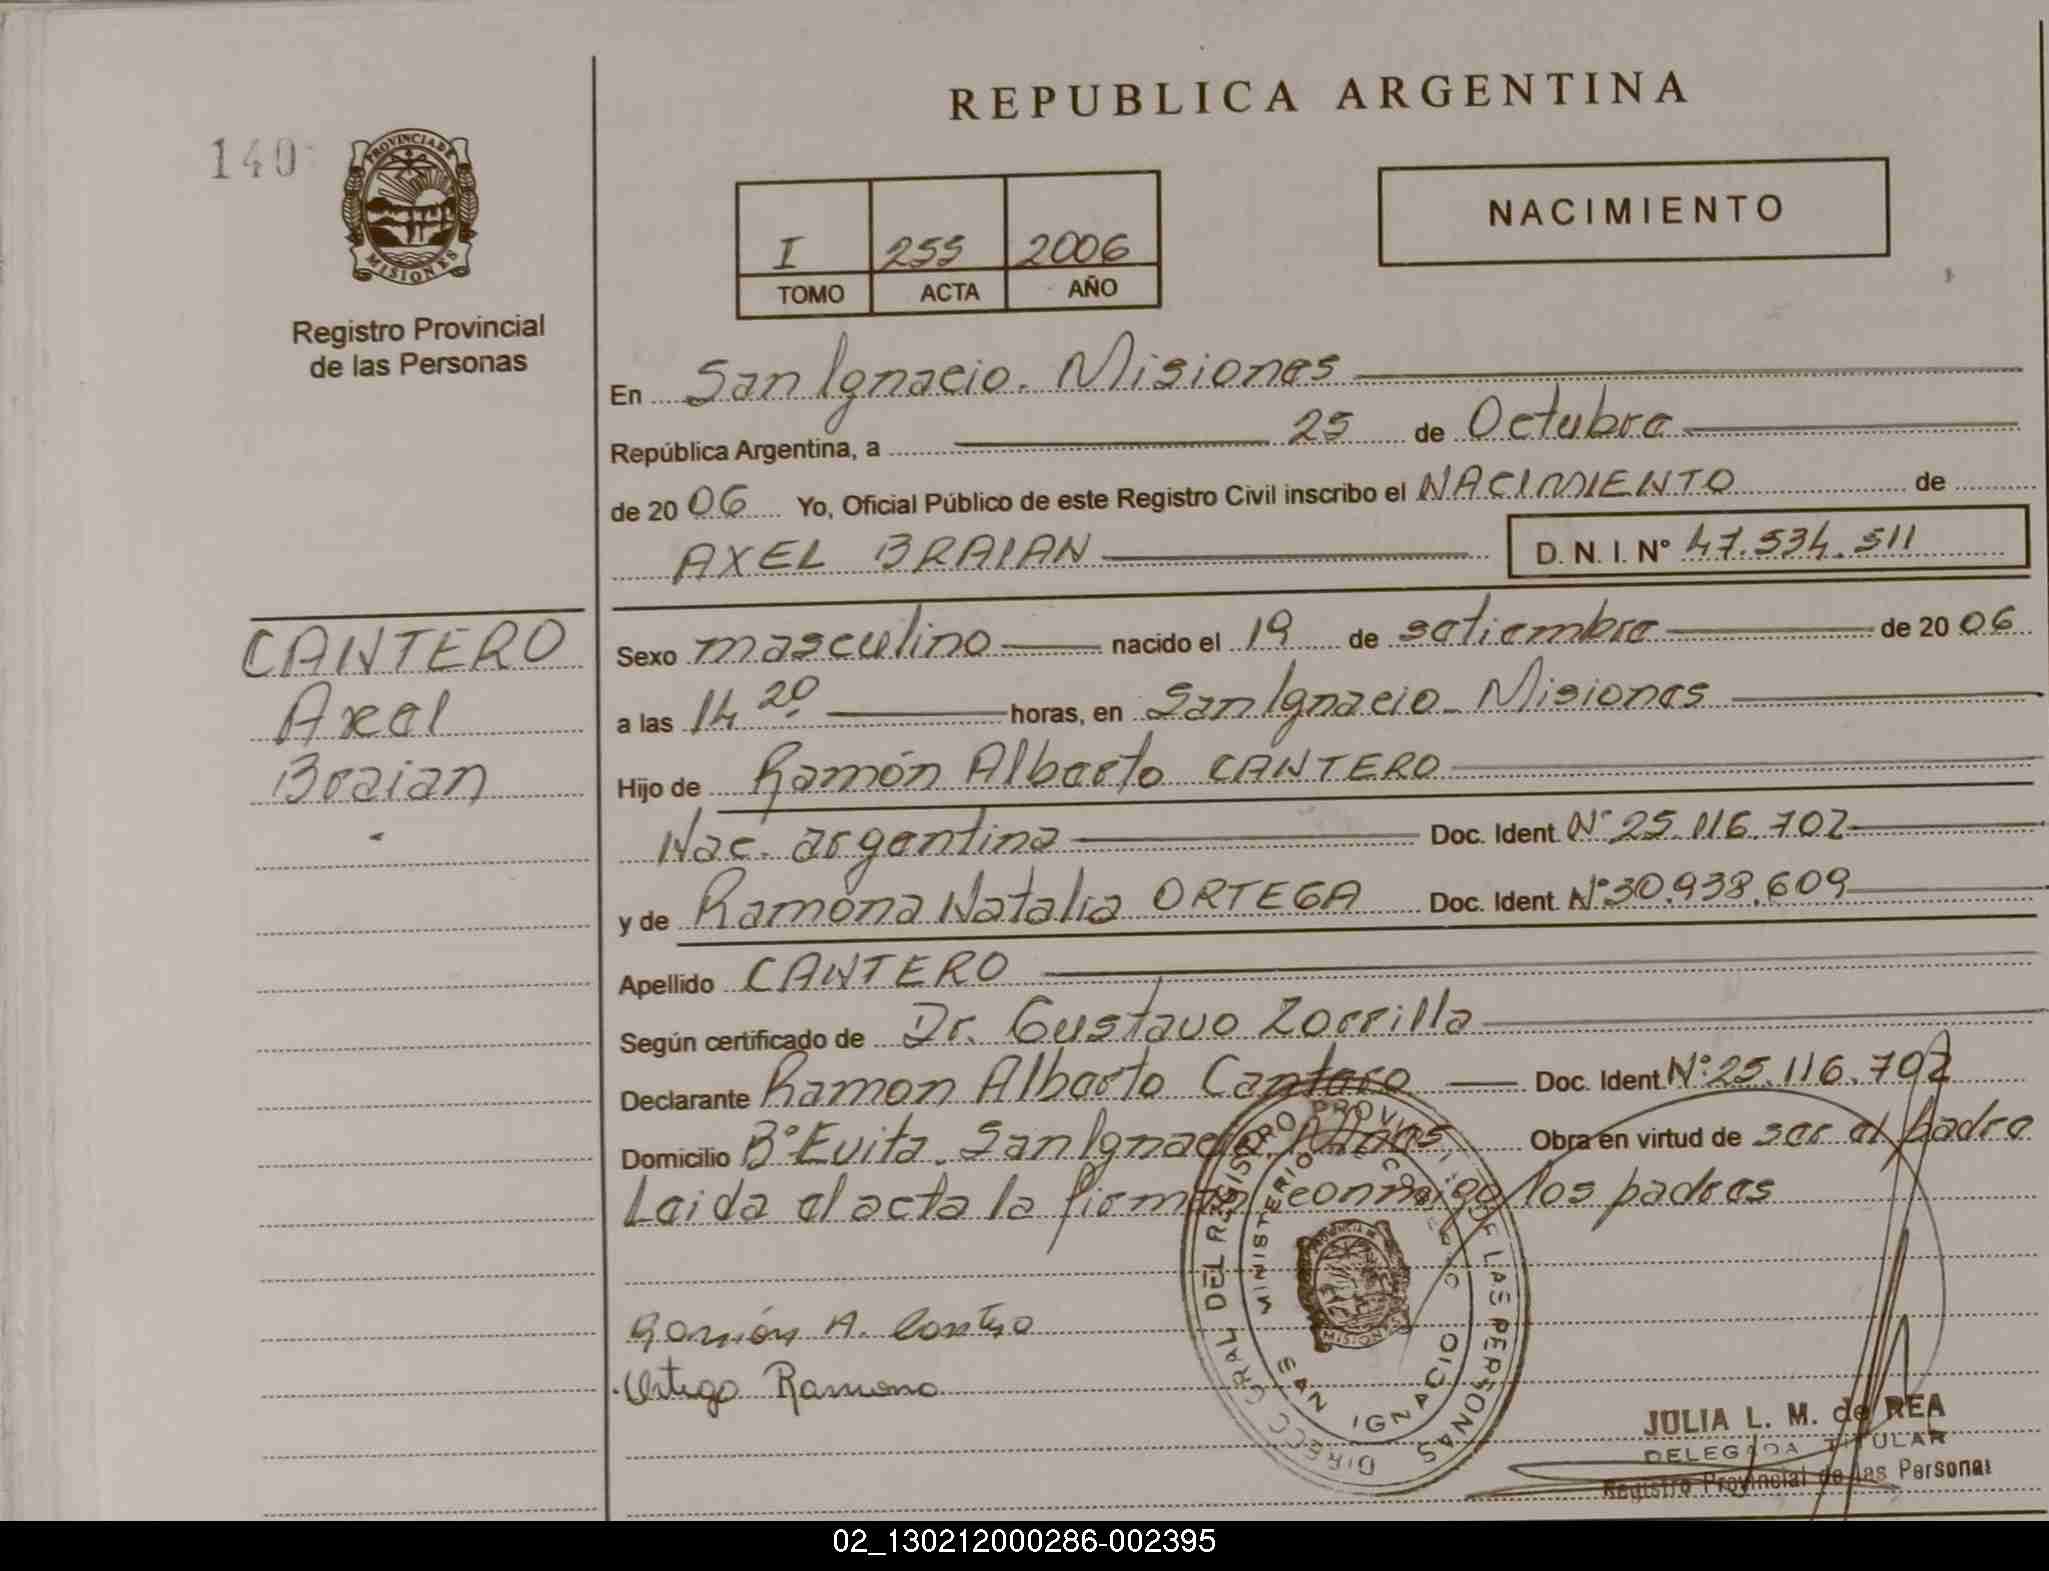 REPUBLICA ARGENTINA
140
PROVINCIA DE MISIONES
Registro Provincial
de las Personas
I 255 2006
TOMO ACTA AÑO
NACIMIENTO
En San Ignacio. Misiones
República Argentina, a 25 de Octubre
de 2006 Yo, Oficial Público de este Registro Civil inscribo el NACIMIENTO de
AXEL BRAIAN D. N. I. N° 47.534.511
CANTERO
Axel
Braian
Sexo masculino nacido el 19 de setiembre de 2006
a las 14 20 horas, en San Ignacio - Misiones
Hijo de Ramón Alberto CANTERO
Nac. argentina Doc. Ident. N° 25.116.702
y de Ramona Natalia ORTEGA Doc. Ident. N° 30.938.609
Apellido CANTERO
Según certificado de Dr. Gustavo Zorrilla
Declarante Ramon Alberto Cantero Doc. Ident. N° 25.116.702
Domicilio B° Evita. San Ignacio. Obra en virtud de ser el padre
Leida el acta la firman conmigo los padres
Ramón A. Cantero
Ortega Ramona
DIRECC GRAL DEL REGISTRO PROVINCIAL DE LAS PERSONAS
MINISTERIO DE
SAN IGNACIO
MISIONES
JULIA L. M. de REA
DELEGADA TITULAR
Registro Provincial de las Personas
02_130212000286-002395